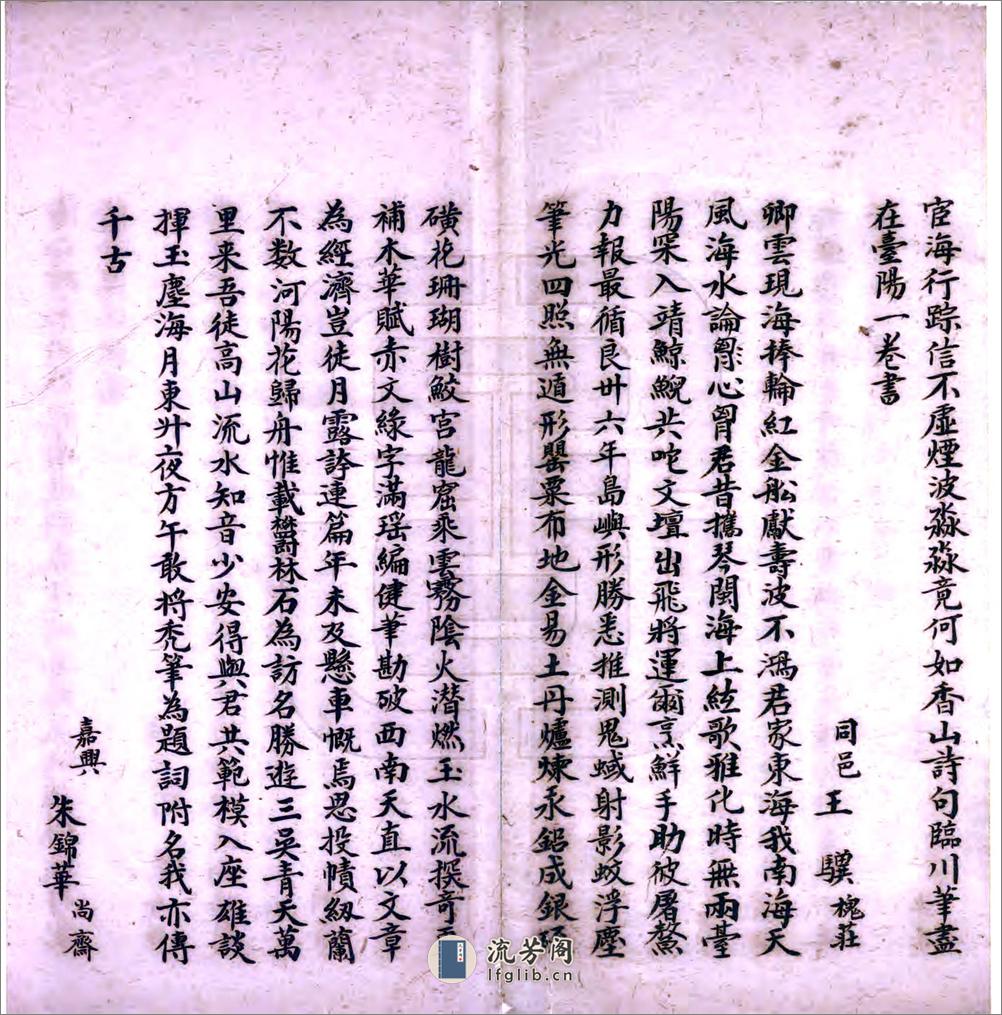 宦海行踪信不虛煙波淼淼竟何如香山詩句臨川筆盡
在臺陽一卷書
同邑 王 騤 槐莊
卿雲現海捧輪紅金船獻壽波不鴻君家東海我南海天
風海水論胷心胷君昔攜琴閩海上絃歌雅化時無兩臺
陽罙入靖鯨鯢共咤文壇出飛將運爾烹鮮手助彼屠鰲
力報最循良卅六年島嶼形勝悉推測鬼蜮射影蛟浮塵
筆光四照無遁形罌粟布地金易土丹爐煉汞鉛成銀
磺花珊瑚樹鮫宮龍窟乘雲霧陰火潛燃玉水流撰奇
補木華賦赤文綠字滿瑶編健筆勘破西南天直以文章
為經濟豈徒月露誇連篇年未及懸車慨焉思投幘紉蘭
不数河陽花歸舟惟載欝林石為訪名勝遊三吳青天萬
里来吾徒高山流水知音少安得與君共範模入座雄談
揮玉塵海月東升夜方午敢将禿筆為題詞附名我亦傳
千古
嘉興 朱錦華 尚齋
流芳阁
lfglib.cn